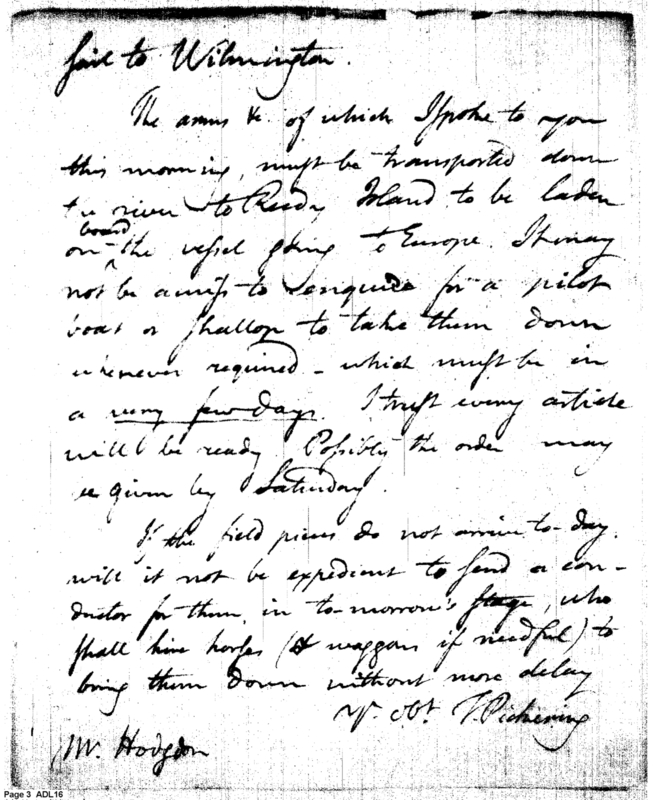 sail to Wilmington.
The arms &c. of which I spoke to you
this morning, must be transported down
the river to Reedy Island to be laden
board
on the vessel going to Europe. It may
not be amiss to enquire for a pilot
boat or shallop to take them down
whenever required - which must be in
a very few days. I trust every article
will be ready. Possibly the order may
be given by Saturday.
If the field pieces do not arrive to-day,
will it not be expedient to send a con-
ductor for them, in to-morrow's stage, who
shall hire horses (& waggons if needful) to
bring them down without more delay
Yr. Obt. T. Pickering
Mr. Hodgdon
Page 3 ADL16